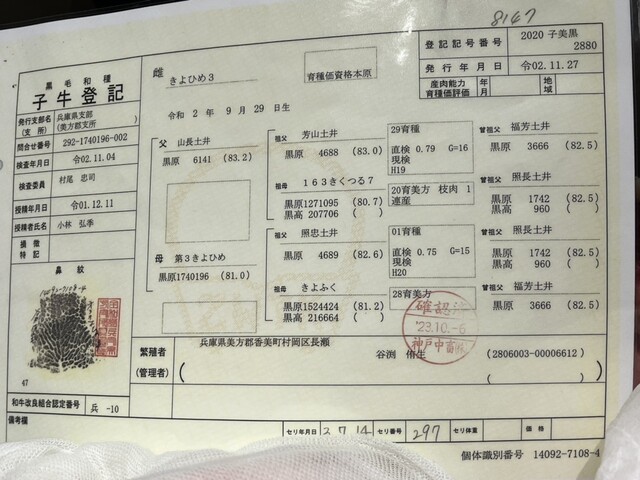 8147
登記記号番号 2020 子美黒 2880
発行年月日 令02.11.27
産肉能力育種価評価 年 月 地域
黒毛和種
子牛登記
雌 きよひめ3
育種価資格本原
令和 2 年 9 月 29 日生
発行支部名(支所) 兵庫県支部(美方郡支所)
問合せ番号 292-1740196-002
検査年月日 令02.11.04
検査委員 村尾 忠司
授精年月日 令01.12.11
授精者氏名 小林 弘季
損徴特記
鼻紋
47
和牛改良組合認定番号 兵 -10
備考欄
父 山長土井
黒原 6141 (83.2)
母 第3きよひめ
黒原1740196 (81.0)
祖父 芳山土井
黒原 4688 (83.0)
29育種
直検 0.79 G=16
現検
H19
祖母 163きくつる7
黒原1271095 (80.7)
黒高 207706 ( )
20育美方 枝肉 1
連産
祖父 照忠土井
黒原 4689 (82.6)
01育種
直検 0.75 G=15
現検
H20
祖母 きよふく
黒原1524424 (81.2)
黒高 216664 ( )
28育美方
曽祖父 福芳土井
黒原 3666 (82.5)
曽祖父 照長土井
黒原 1742 (82.5)
黒高 960 ( )
曽祖父 照長土井
黒原 1742 (82.5)
黒高 960 ( )
曽祖父 福芳土井
黒原 3666 (82.5)
確認済
'23.10.-6
神戸中畜
繁殖者 兵庫県美方郡香美町村岡区長瀬
谷渕 侑生 (2806003-00006612)
(管理者) ( )
セリ年月日 3.7.14 セリ番号 297 セリ体重 価格
個体識別番号 14092-7108-4